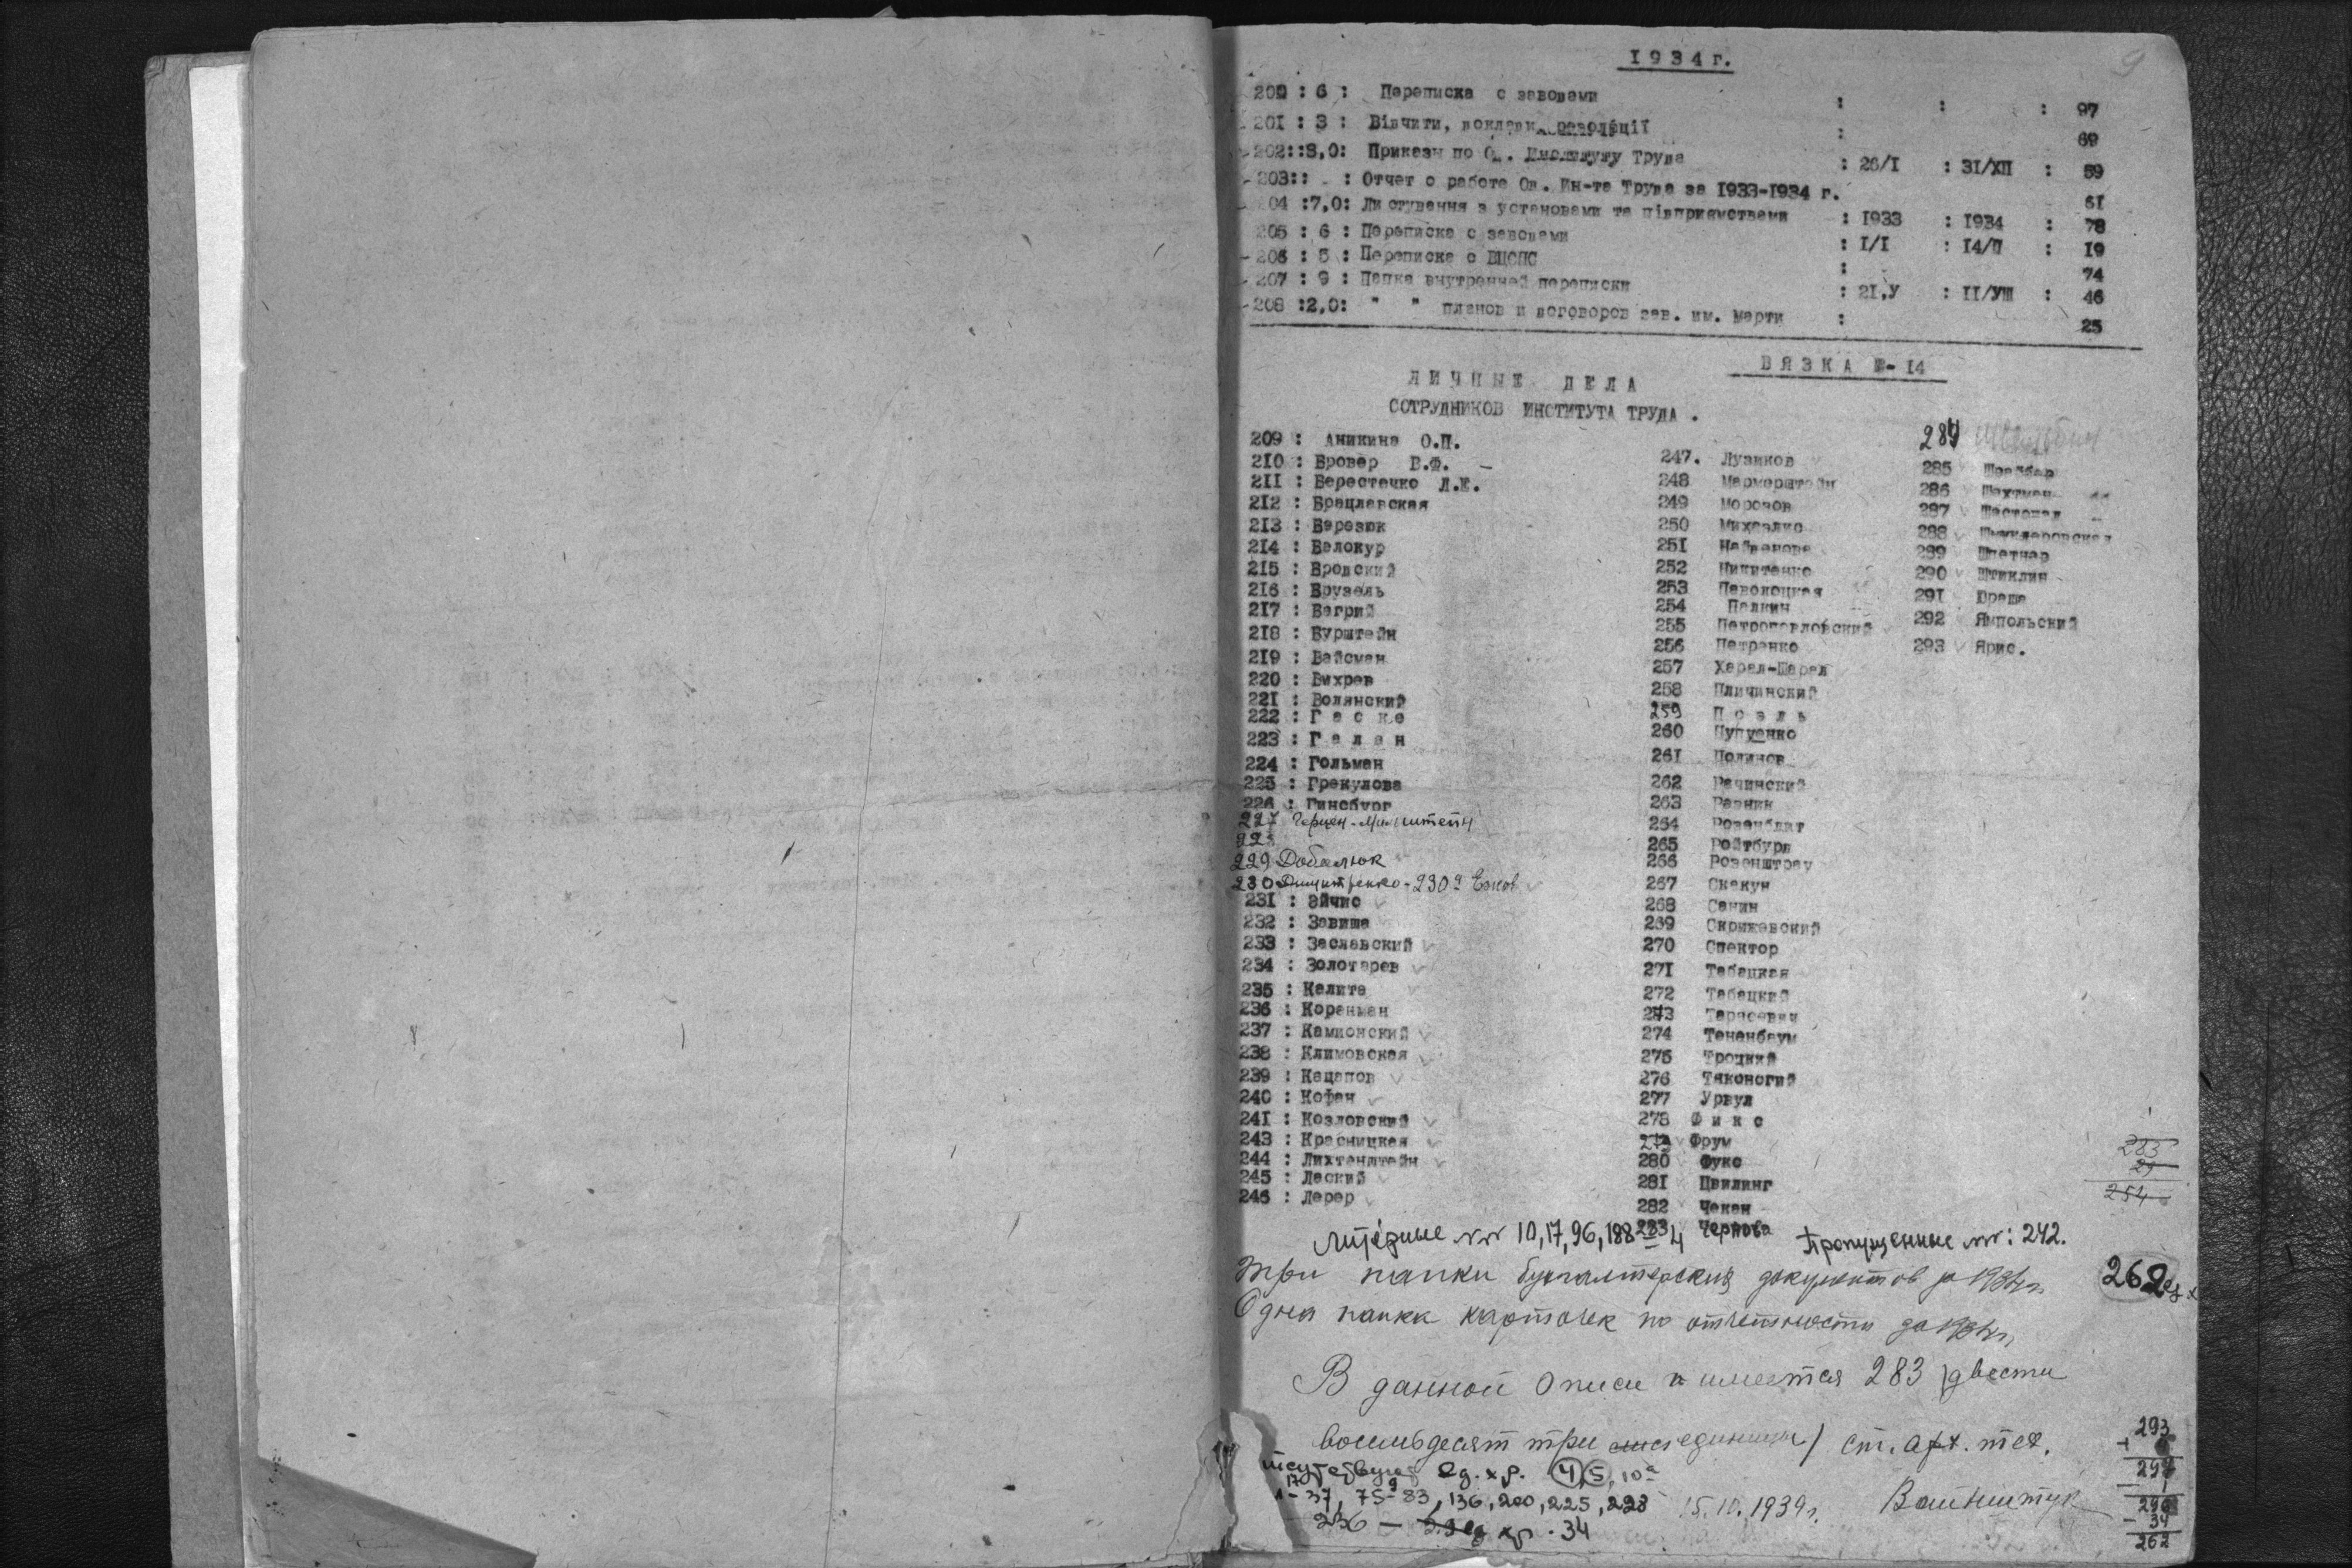 9
1934 г.
200 : 6 : Переписка с заводами : : : 97
201 : 3 : Вівчити, доклади, резолюції : 69
202::3,0: Приказы по Од. Институту Труда : 26/I : 31/XII : 59
203:: : Отчет о работе Од. Ин-та Труда за 1933-1934 г. 61
204 :7,0: Листування з установами та підприємствами : 1933 : 1934 : 78
205 : 6 : Переписка с заводами : I/I : 14/П : 19
206 : 5 : Переписка с ВЦСПС : 74
207 : 9 : Папка внутренней переписки : 21,У : II/УШ : 46
208 :2,0: " " планов и договоров зав. им. Марти : 25
ВЯЗКА №- 14
ЛИЧНЫЕ ДЕЛА
СОТРУДНИКОВ ИНСТИТУТА ТРУДА .
209 : Аникина О.П.
210 : Бровер В.Ф. –
211 : Берестечко Л.И.
212 : Брацлавская
213 : Березюк
214 : Белокур
215 : Бродский
216 : Брузель
217 : Вагрий
218 : Бурштейн
219 : Вайсман
220 : Вихрев
221 : Волянский
222 : Г а с к е
223 : Г а л а н
224 : Гольман
225 : Грекулова
226 : Гинсбург
227
228
229 Добалюк
230 Димитренко - 230а
231 : Эйчис
232 : Завиша
233 : Заславский
234 : Золотарев
235 : Калита
236 : Коренман
237 : Камионский
238 : Климовская
239 : Кацапов
240 : Кофан
241 : Козловский
243 : Красницкая
244 : Лихтенштейн
245 : Леский
246 : Лерер
247. Лузиков
248 Мармерштейн
249 Морозов
250 Михаэлис
251 Найденова
252 Никитенко
253 Паволоцкая
254 Палкин
255 Петропавловский
256 Петренко
257 Харал-Шарал
258 Пличинский
259 П о э л ь
260 Пупченко
261 Полинов
262 Рачинский
263 Разнин
264 Розенблат
265 Ройтбурд
266 Розенштрау
267 Скакун
268 Санин
269 Скрижевский
270 Спектор
271 Табацкая
272 Табацкий
273 Тарасевич
274 Тененбаум
275 Троцкий
276 Тяконогий
277 Урвул
278 Ф и к с
279 Фрум
280 Фукс
281 Цвилинг
282 Чекан
283 Чернова
284
285 Шрайбер
286 Шахтман
287
288
289 Шпетнер
290 Штиклин
291 Юраша
292 Ямпольский
293 Ярис.
283
29
254
Литерные №№ 10, 17, 96, 188 – 4 Пропущенные №№: 242.
Три папки бухгалтерских документов за 1934 г.
262 ед. х
Одна папка карточек по отчетности за 1934 г.
В данной описи имеется 283 /двести
восемьдесят три единицы/ ст. арх. тех.
Отсутствуют ед. хр. 4, 5, 10а
37, 75-83, 136, 200, 225, 228 15.10.1939 г. Вайнштук
236 – ед хр. 34
293
+ 4
297
– 1
296
– 34
262